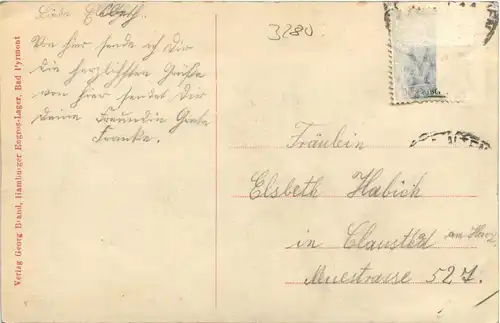 Liebe Elsbeth.
Von hier sende ich Dir
die herzlichsten Grüße
von hier sendet Dir
Deine Freundin Grete
Franke.
3280
Fräulein
Elsbeth Habich
in Claustal am Harz
52
Verlag Georg Brand, Hamburger Engros-Lager, Bad Pyrmont